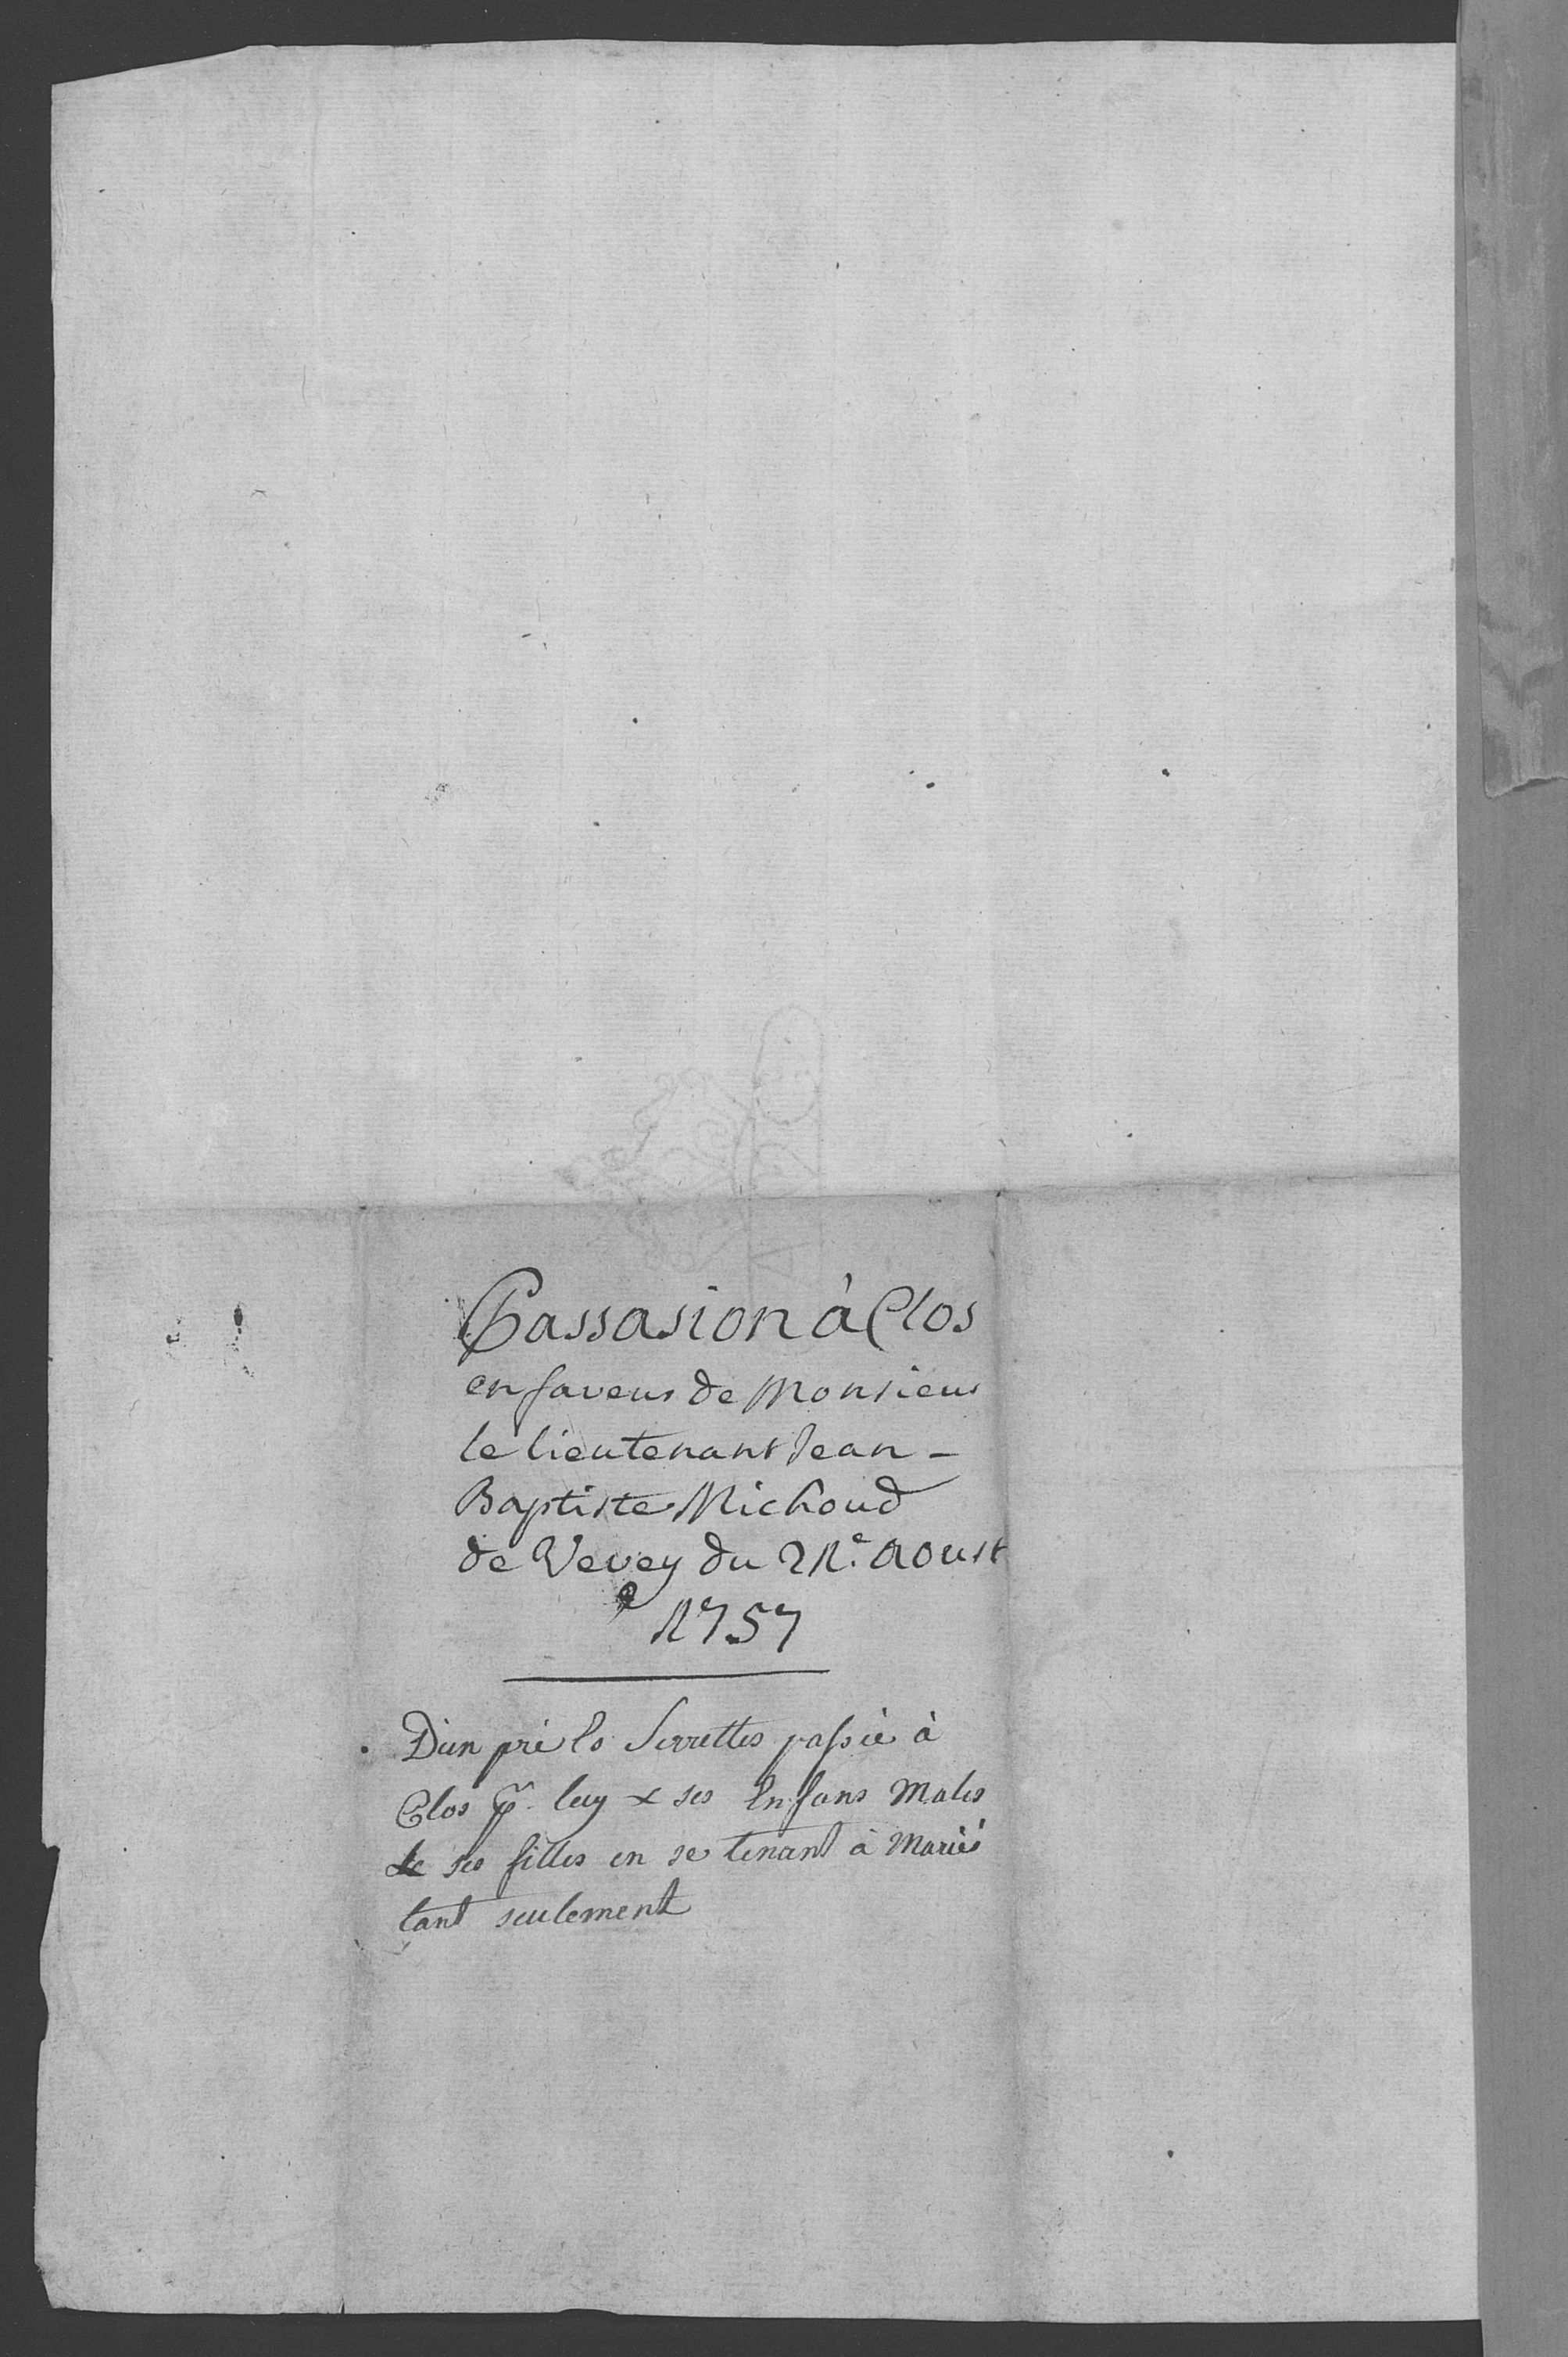 Passasion à Clos
en faveur de Monsieur
le lieutenant Jean -
Baptiste Michoud
de Vevey du 21.e Aoust
1757
D'un pré Es Serrettes passée à
Clos pr. luy & ses Enfans Males
& ses filles en se tenant à Mariés
tant seulement